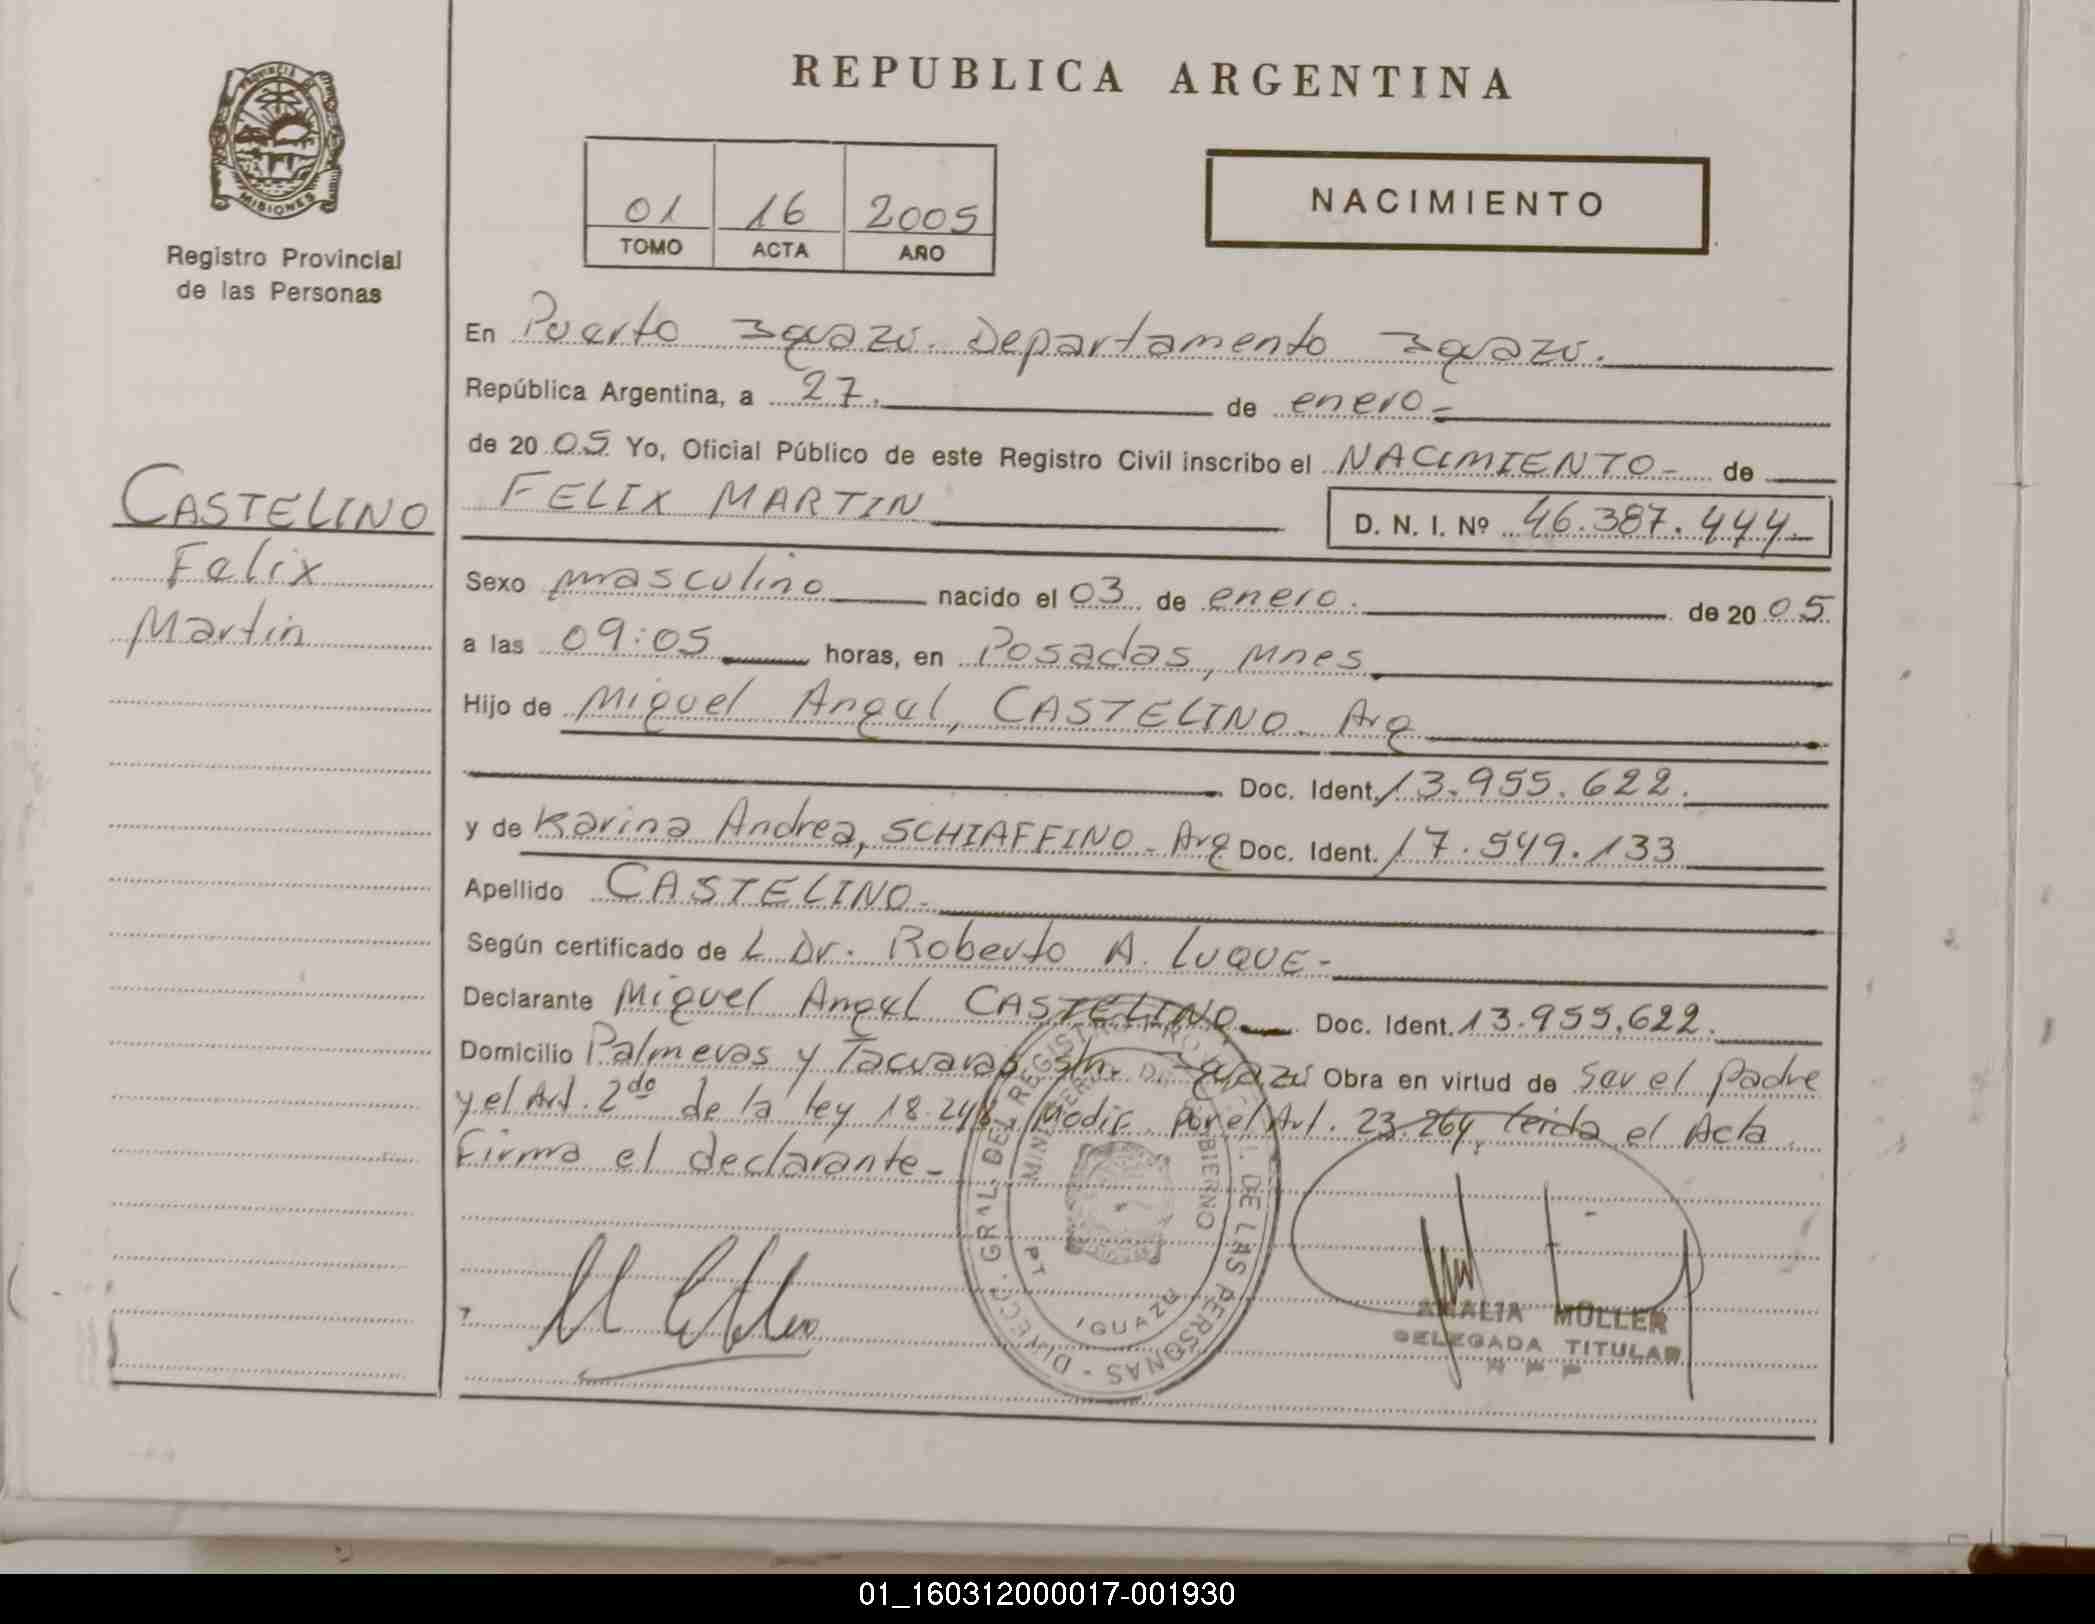 REPUBLICA ARGENTINA
PROVINCIA DE
MISIONES
Registro Provincial
de las Personas
01 16 2005
TOMO ACTA AÑO
NACIMIENTO
En Puerto Iguazú. Departamento Iguazú.
República Argentina, a 27. de enero-
de 2005 Yo, Oficial Público de este Registro Civil inscribo el NACIMIENTO- de
FELIX MARTIN D. N. I. Nº 46.387.444-
CASTELINO
Felix
Martin
Sexo masculino nacido el 03 de enero. de 2005
a las 09:05 horas, en Posadas, Mnes
Hijo de Miguel Angel, CASTELINO- Arg
Doc. Ident. 13.955.622.
y de Karina Andrea, SCHIAFFINO- Arg Doc. Ident. 17.549.133
Apellido CASTELINO-
Según certificado de L Dr. Roberto A. LUQUE-
Declarante Miguel Angel CASTELINO Doc. Ident. 13.955.622.
Domicilio Palmeras y Tacuaras s/n. Iguazú Obra en virtud de ser el padre
y el Art. 2do de la ley 18.248 Modif. por el Art. 23.264, leida el Acta
Firma el declarante-
DIRECC. GRAL. DEL REGISTRO PROV. DE LAS PERSONAS -
MINISTERIO DE GOBIERNO
PT IGUAZU
AMALIA MULLER
DELEGADA TITULAR
01_160312000017-001930